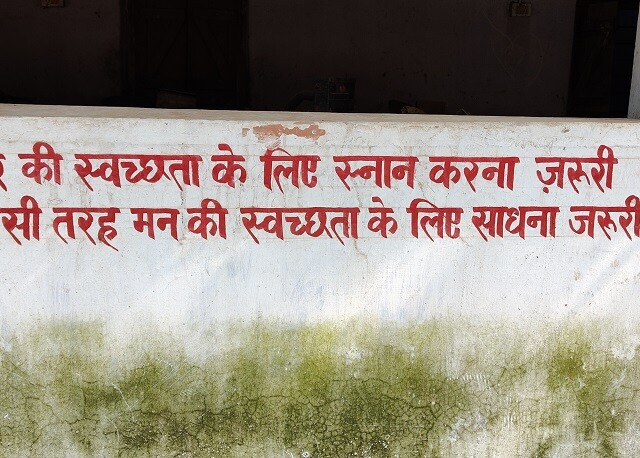 की स्वच्छता के लिए स्नान करना ज़रूरी
सी तरह मन की स्वच्छता के लिए साधना जरूरी